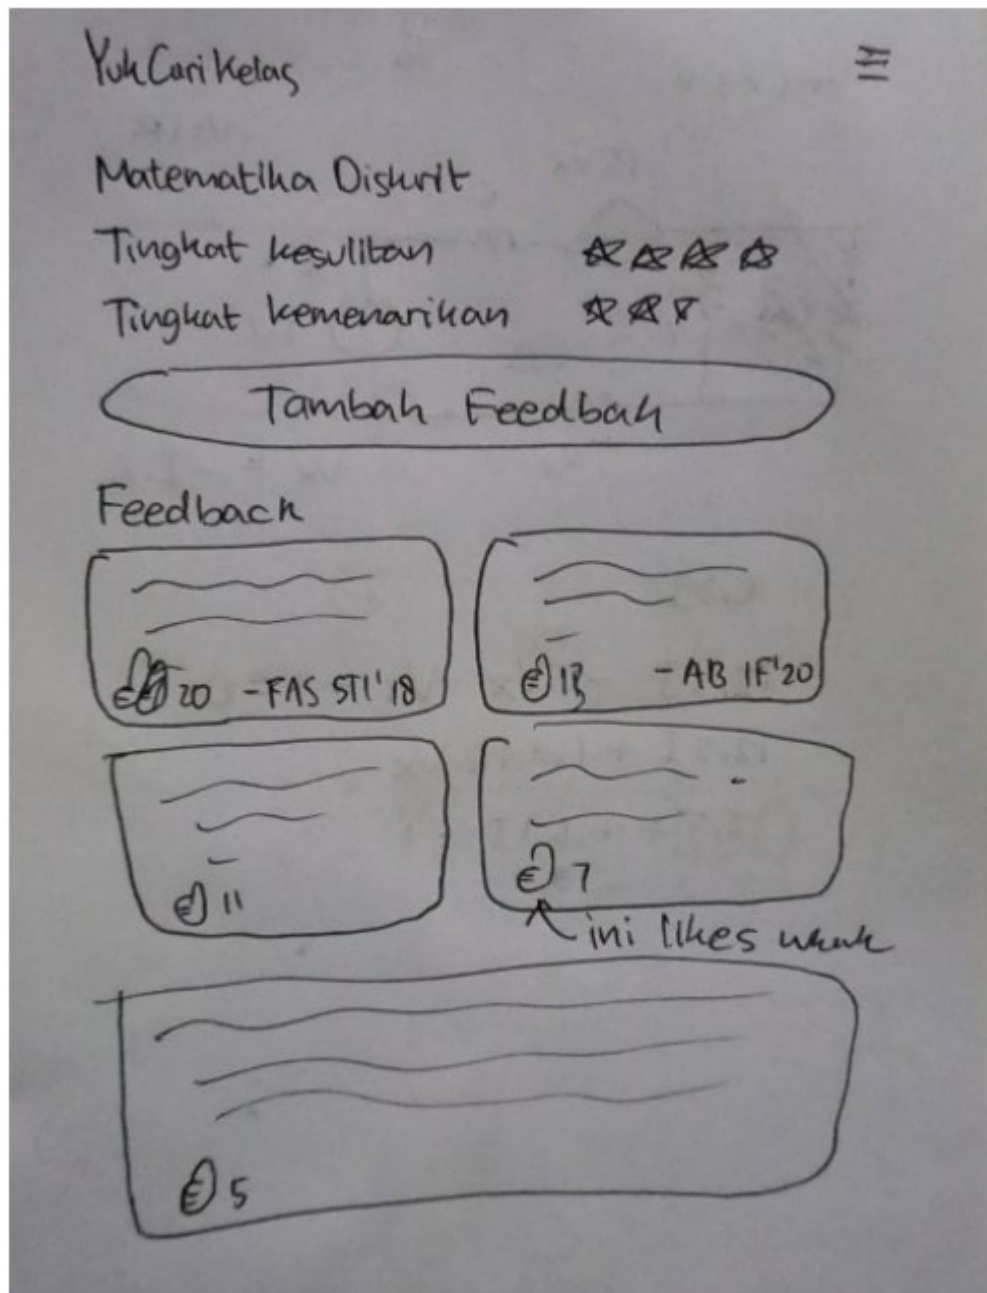 YukCariKelas
Matematika Diskrit
Tingkat kesulitan
Tingkat kemenarikan
Tambah Feedbak
Feedback
20 -FAS STI'18
13 -AB IF'20
11
7
ini likes
5